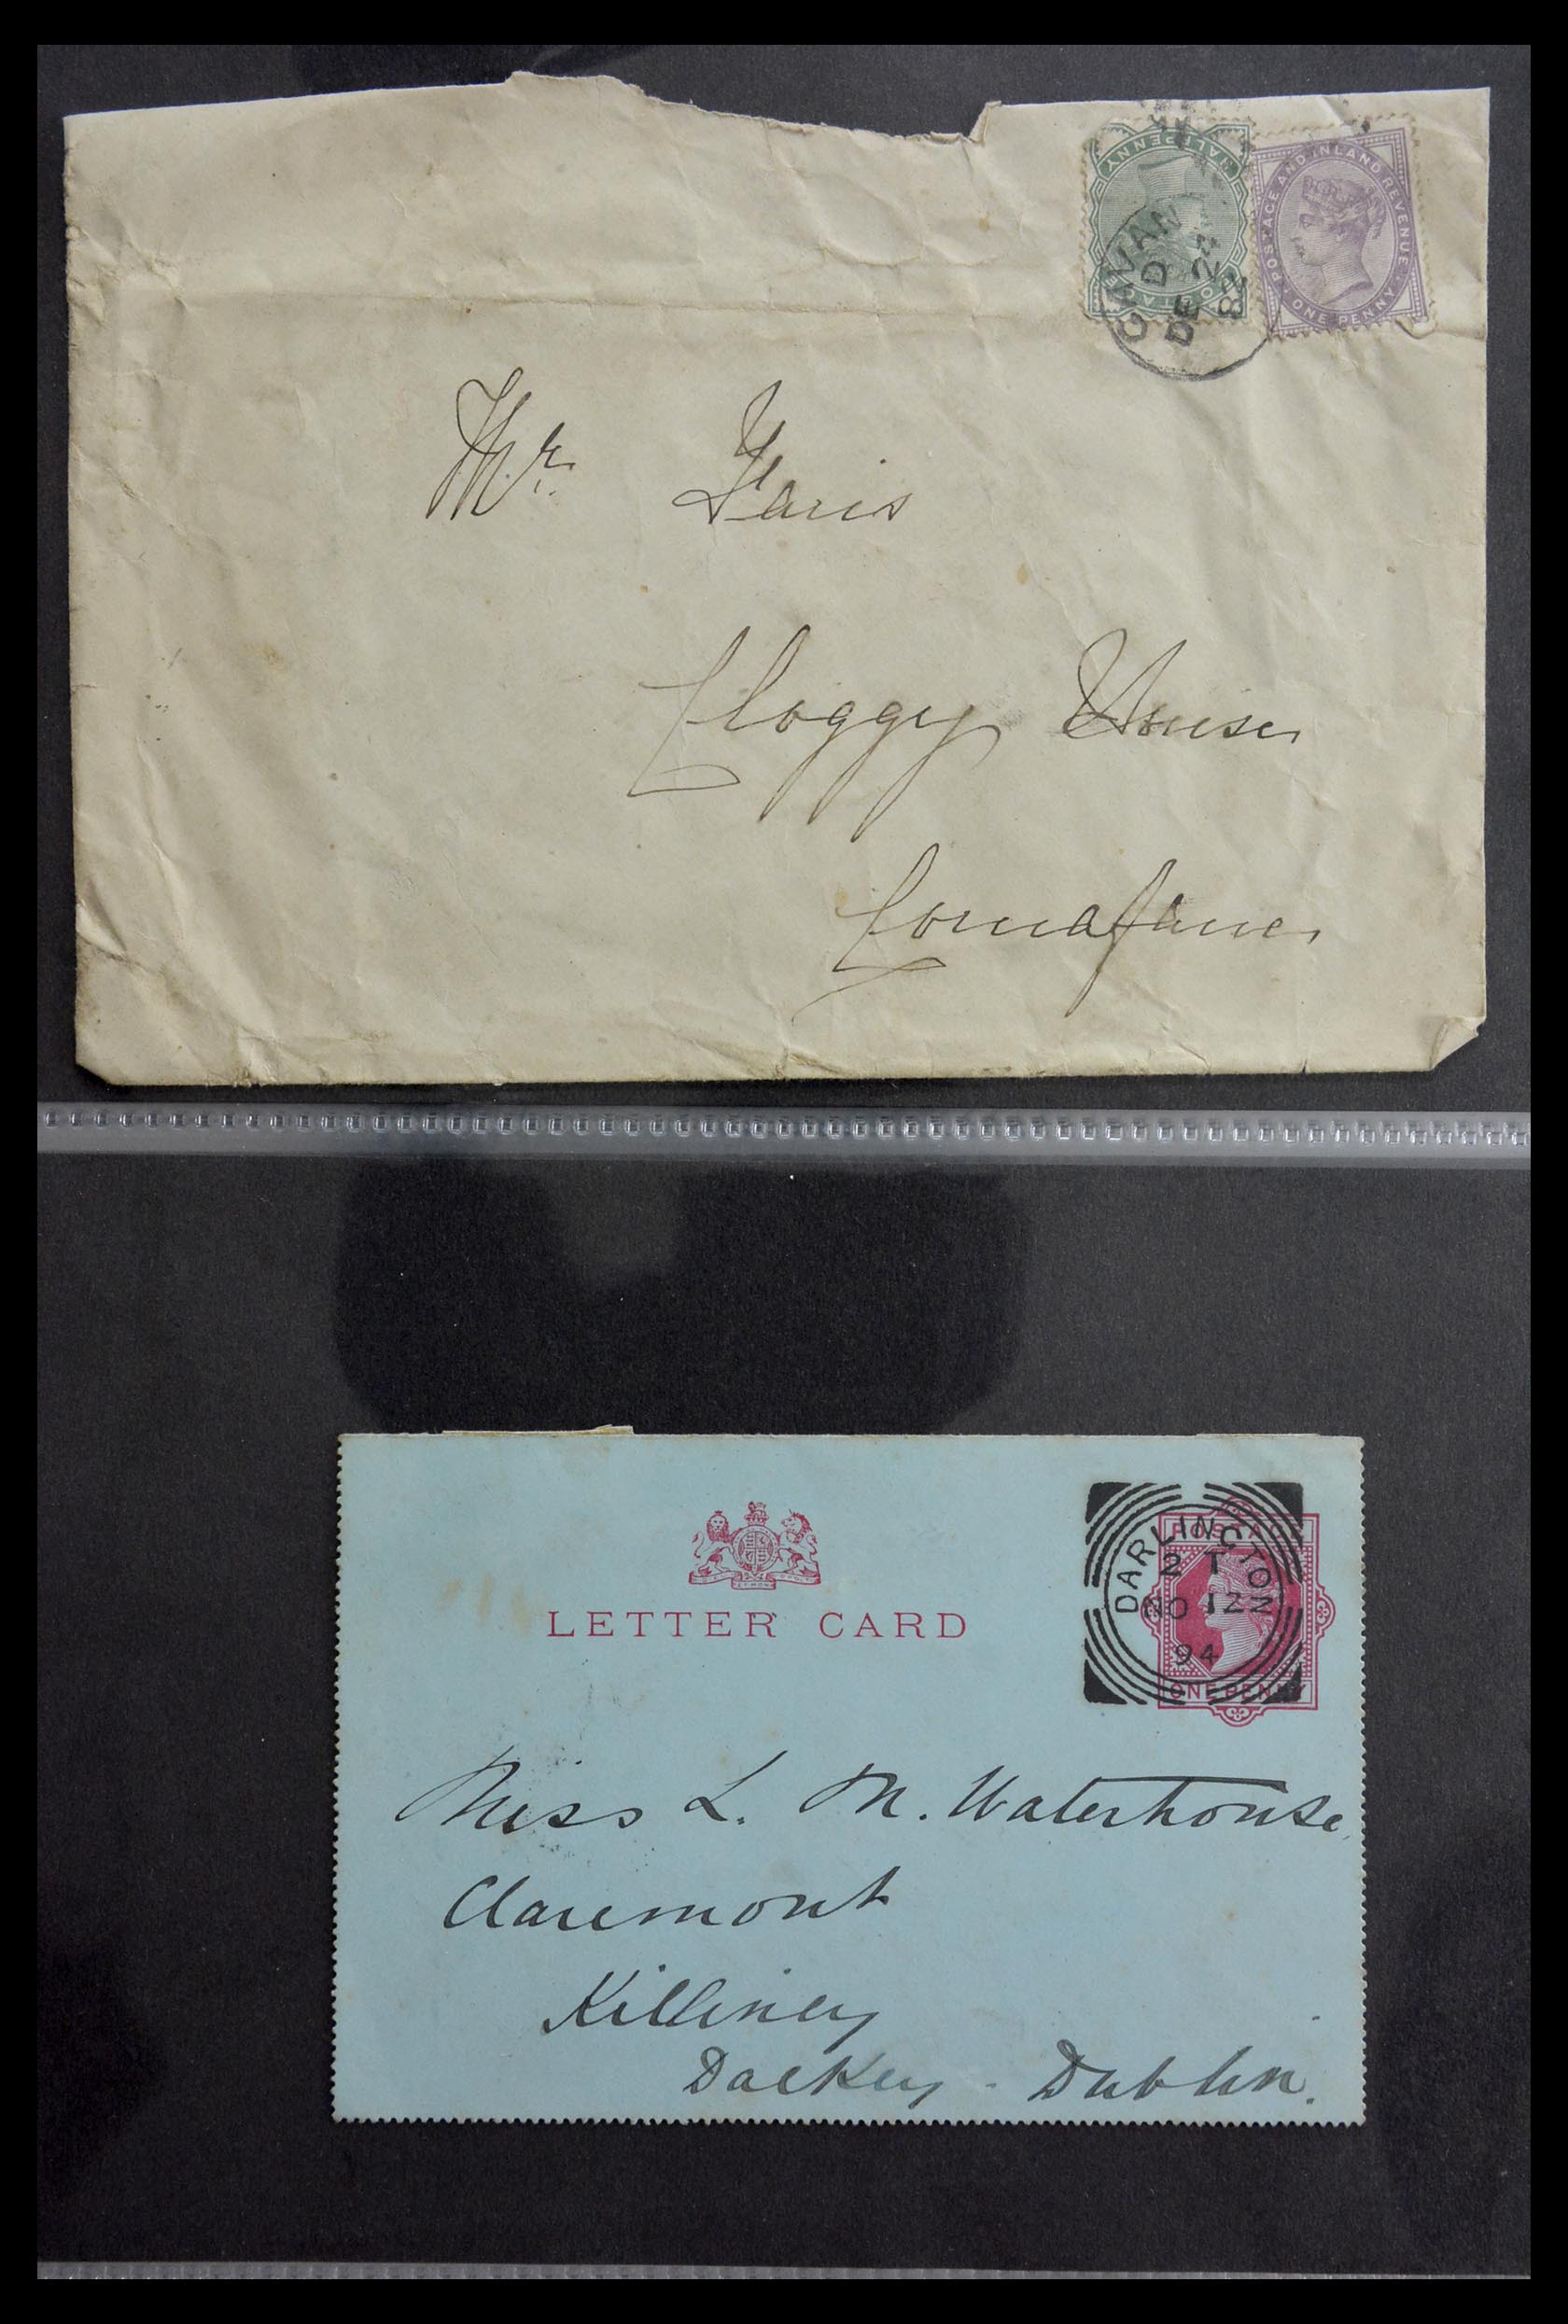 HALFPENNY
POSTAGE AND INLAND REVENUE
ONE PENNY
CAVAN
D
DE 24
Mr. Faris
Cloggy House
Cornafane
LETTER CARD
DARLINGTON
2 T
NO 12
94
ONE PENNY
Miss L. M. Waterhouse
Claremont
Killiney
Dalkey - Dublin.